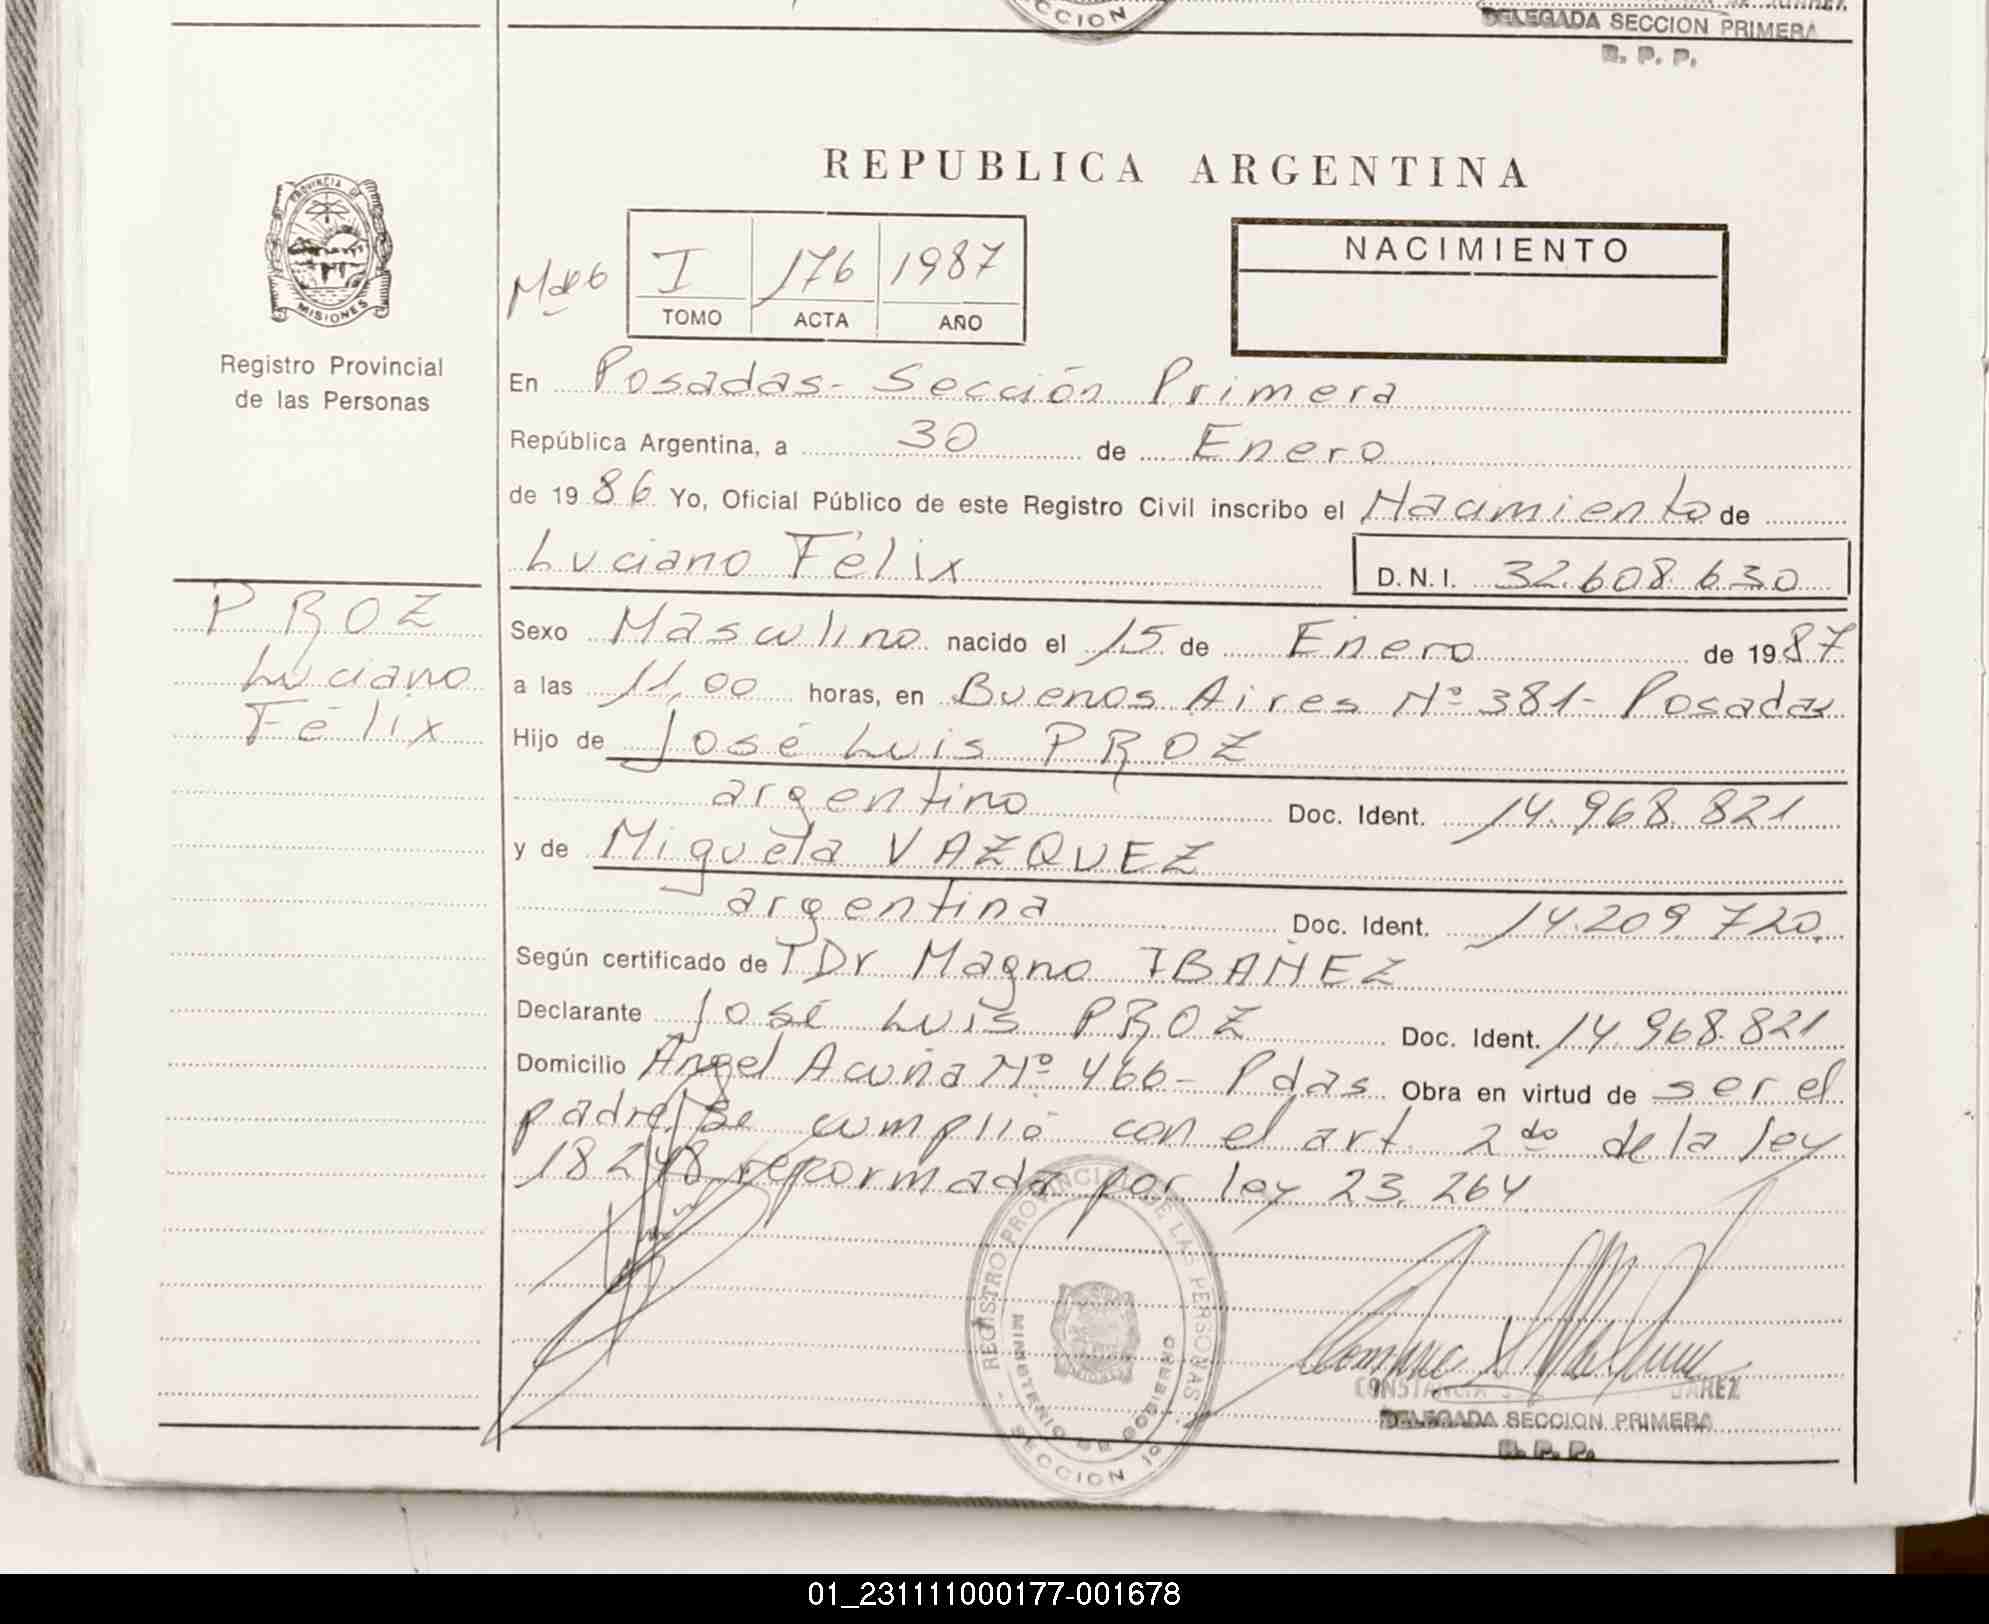 CCION
DELEGADA SECCION PRIMERA
R. P. P.
REPUBLICA ARGENTINA
PROVINCIA DE
MISIONES
Registro Provincial
de las Personas
I 176 1987
TOMO ACTA AÑO
NACIMIENTO
En Posadas- Sección Primera
República Argentina, a 30 de Enero
de 1986 Yo, Oficial Público de este Registro Civil inscribo el Nacimiento de
Luciano Félix D.N.I. 32.608.630
PROZ
Luciano
Félix
Sexo Masculino nacido el 15 de Enero de 1987
a las 11,00 horas, en Buenos Aires Nº 381- Posadas
Hijo de José Luis PROZ
argentino Doc. Ident. 14.968.821
y de Miguela VAZQUEZ
argentina Doc. Ident. 14.209.720
Según certificado de TDr Magno IBAÑEZ
Declarante José Luis PROZ Doc. Ident. 14.968.821
Domicilio Ángel Acuña Nº 466- Pdas Obra en virtud de ser el
padre. Se cumplió con el art. 2do de la ley
18248 reformada por ley 23.264
REGISTRO PROVINCIAL DE LAS PERSONAS
MINISTERIO DE GOBIERNO
SECCION 1º
CONSTANCIA JUAREZ
DELEGADA SECCION PRIMERA
R. P. P.
01_231111000177-001678